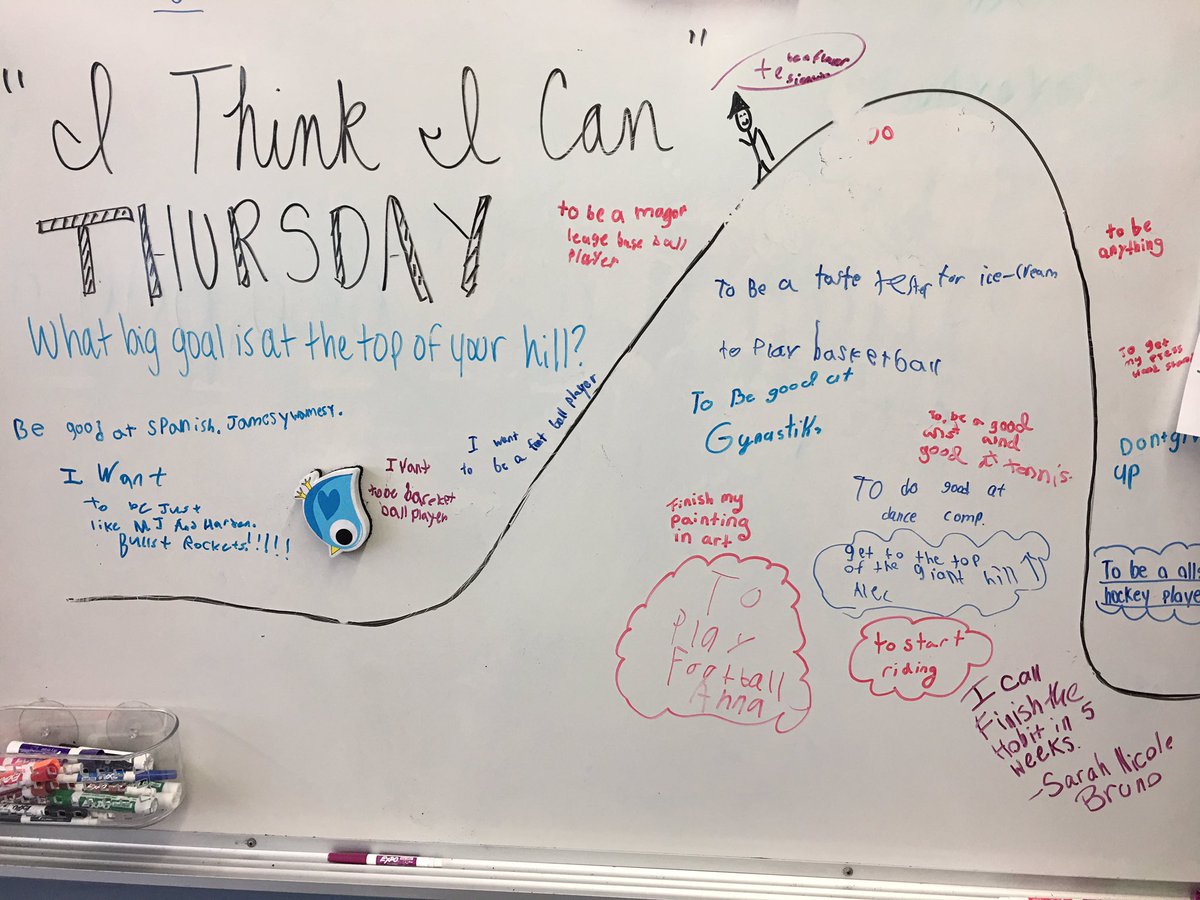 "I Think I Can"
THURSDAY
What big goal is at the top of your hill?
Be good at Spanish. Jamesywamesy.
I Want
to be Just
like MJ And Harden.
Bullst Rockets!!!!!
I Vant
to be basket
ball player
I want
to be a foot ball player
to be a magor
leage base ball
player
te
be a player
To Be a taste tester for ice-cream
to Play basketball
To Be good at
Gynastiks
To be a good
and
good at tennis.
Finish my
painting
in art
TO do good at
dance comp.
get to the top
of the giant hill
Alec
To
Play
Football
Anna
to start
riding
I can
Finish the
Hobit in 5
weeks.
-Sarah Nicole
Bruno
to be
anything
To get
my
Dont giv
up
To be a alls
hockey playe